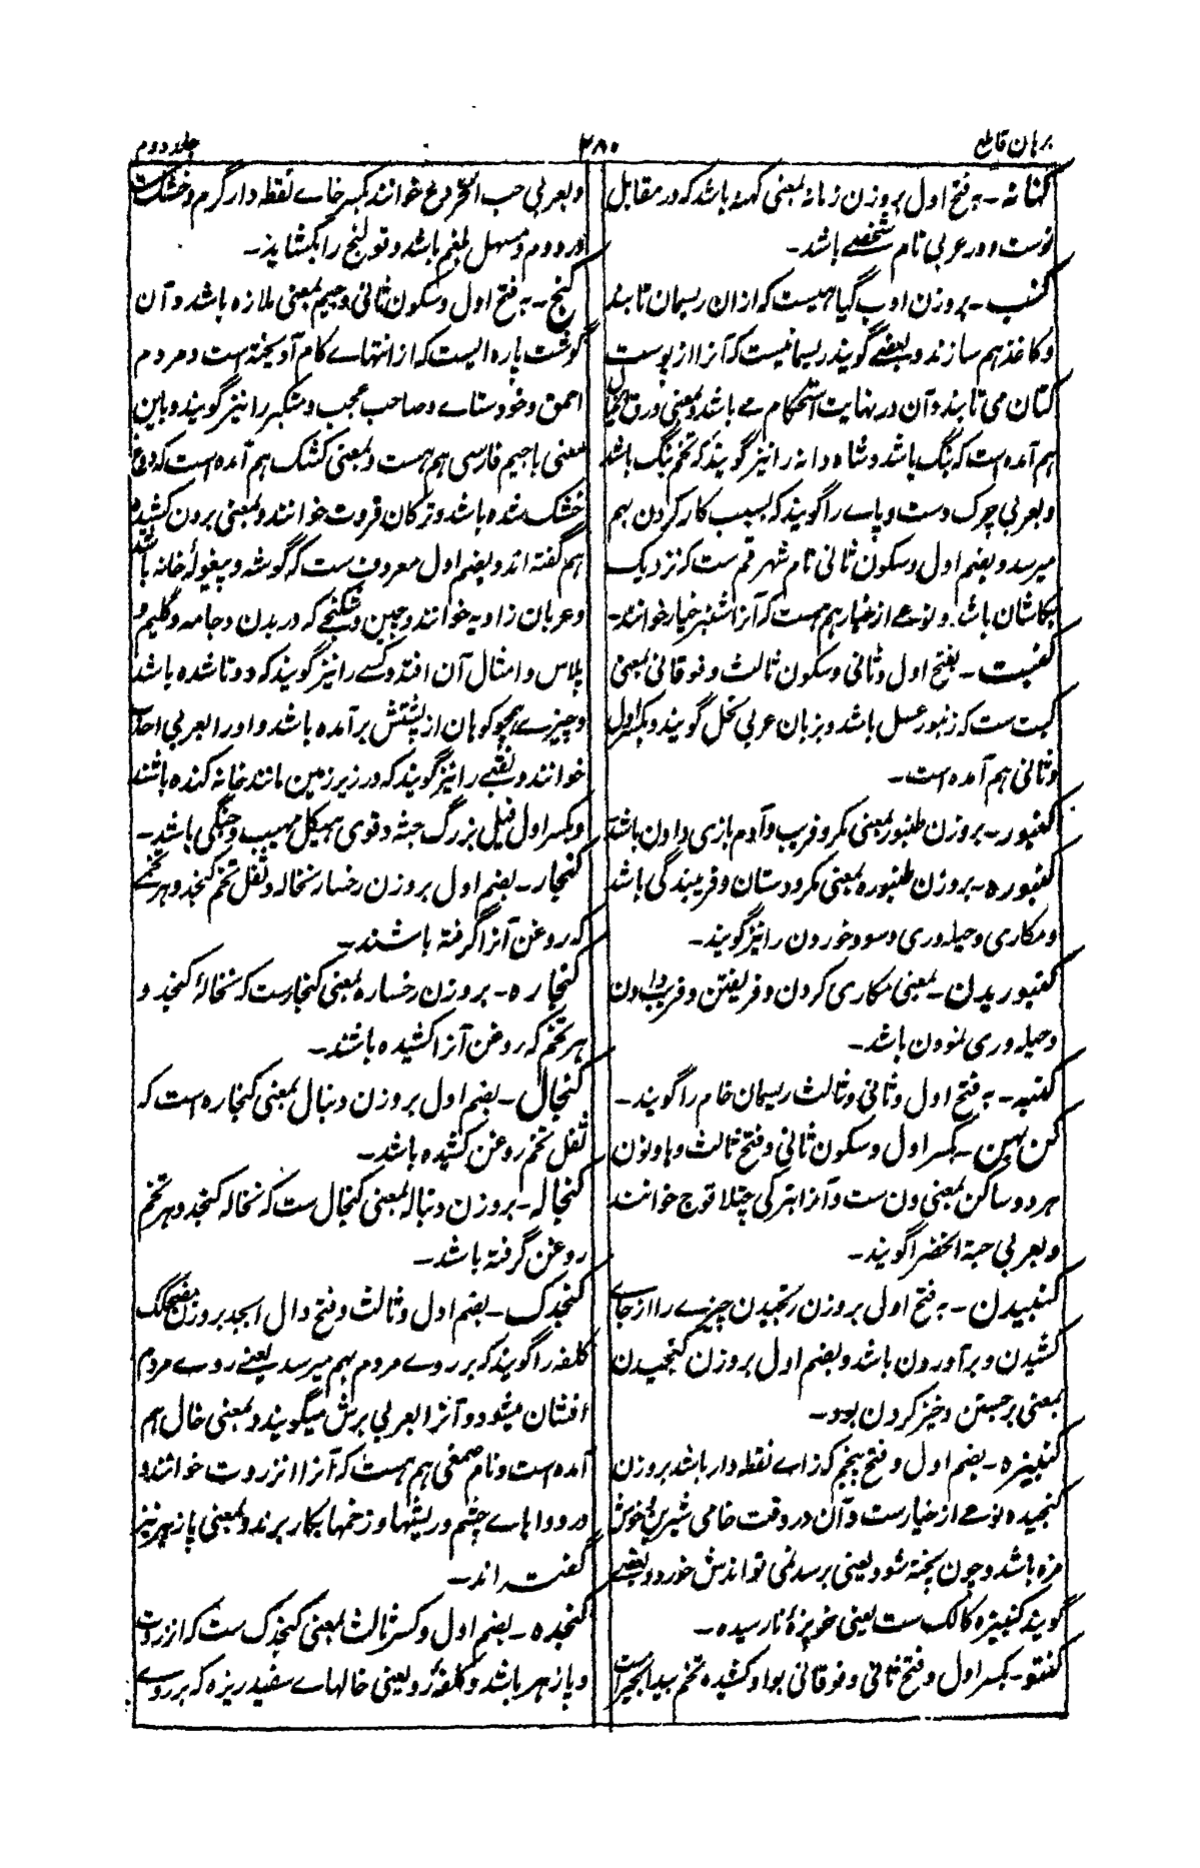 برہان قاطع
۲۸۰
جلد دوم
کنانہ - بہ فتح اول بروزن زمانہ بمعنی کہنہ باشد کہ در مقابل
نوست و در عربی نام شخصے باشد -
کنب - بروزن ادب گیاہیست کہ ازان ریسمان تابند
و کاغذ ہم سازند و بعضے گویند ریسمانیست کہ آنرا از پوست
کتان می تابند و آن در نہایت استحکام مے باشد و بمعنی ورق الخیال
ہم آمدہ است کہ بنگ باشد و شاہ دانہ را نیز گویند کہ تخم بنگ باشد
و بعربی چرک دست و پاے را گویند کہ بسبب کار کردن بہم
میرسد و بضم اول و سکون ثانی نام شہر قم ست کہ نزدیک
بکاشان باشد و نوعے از خیار ہم ہست کہ آنرا شنبر خیار خوانند -
کنبت - بفتح اول و ثانی و سکون ثالث و فوقانی بمعنی
کبت ست کہ زنبور عسل باشد و بزبان عربی نحل گویند و بکسر اول
و ثانی ہم آمدہ است -
کنبور - بروزن طنبور بمعنی مکر و فریب و آدم بازی دادن باشد
کنبورہ - بروزن طنبورہ بمعنی مکر و دستان و فریبندگی باشد
و مکاری و حیلہ وری و سود خوردن را نیز گویند -
کنبوریدن - بمعنی مکاری کردن و فریفتن و فریب دادن
و حیلہ وری نمودن باشد -
کنبہ - بہ فتح اول و ثانی و ثالث ریسمان خام را گویند -
کن بہن - بکسر اول و سکون ثانی و فتح ثالث و ہا و نون
ہر دو ساکن بمعنی ون ست و آنرا بترکی چتلاقوج خوانند
و بعربی حبۃ الخضرا گویند -
کنبیدن - بہ فتح اول بروزن رنجیدن چیزے را از جاے
کشیدن و برآوردن باشد و بضم اول بروزن گنجیدن
بمعنی برجستن و خیز کردن بود -
کنبیزہ - بضم اول و فتح پنجم کہ زاے نقطہ دار باشد بروزن
گنجیدہ نوعے از خیارست و آن در وقت خامی شیرین و خوش
مزہ باشد و چون پختہ شود یعنی برسد نمی توانندش خورد و بعضے
گویند کنبیزہ کالک ست یعنی خربزۂ نارسیدہ -
کنتو - بکسر اول و فتح ثانی و فوقانی بواو کشیدہ تخم بیدانجیر است
و بعربی حب الخروع خوانند بکسر خاے نقطہ دار گرم و خشک ست
در دوم و مسہل بلغم باشد و قولنج را بکشاید -
کنج - بہ فتح اول و سکون ثانی و جیم بمعنی ملازہ باشد و آن
گوشت پارہ ایست کہ از انتہاے کام آویختہ است و مردم
احمق و خودستاے و صاحب عجب و متکبر را نیز گویند و باین
معنی با جیم فارسی ہم ہست و بمعنی کشک ہم آمدہ است کہ دوغ
خشک شدہ باشد و ترکان قروت خوانند و بمعنی برون کشیدہ
ہم گفتہ اند و بضم اول معروف ست کہ گوشہ و بیغولۂ خانہ باشد
و عربان زاویہ خوانند و چین و شکنجے کہ در بدن و جامہ و گلیم و
پلاس و امثال آن افتد و کسے را نیز گویند کہ دوتا شدہ باشد
و چیزے ہمچو کوہان از پشتش برآمدہ باشد و او را بعربی احدب
خوانند و نقبے را نیز گویند کہ در زیر زمین مانند خانہ کندہ باشند
و بکسر اول فیل بزرگ جثہ و قوی ہیکل مہیب و جنگی باشد -
کنجار - بضم اول بروزن رخسار نخالہ و ثفل تخم کنجد و ہر تخمے
کہ روغن آنرا گرفتہ باشند -
کنجارہ - بروزن رخسارہ بمعنی کنجارست کہ نخالۂ کنجد و
ہر تخم کہ روغن آنرا کشیدہ باشند -
کنجال - بضم اول بروزن دنبال بمعنی کنجارہ است کہ
ثفل تخم روغن کشیدہ باشد -
کنجالہ - بروزن دنبالہ بمعنی کنجال ست کہ نخالہ کنجد و ہر تخم
روغن گرفتہ باشد -
کنجدک - بضم اول و ثالث و فتح دال ابجد بروزن مضحکک
کلفہ را گویند کہ بر روے مردم بہم میرسد یعنی روے مردم
افشان میشود و آنرا بعربی برش میگویند و بمعنی خال ہم
آمدہ است و نام صمغی ہم ہست کہ آنرا انزروت خوانند و
در دواہاے چشم و ریشہا و زخمہا بکار برند و بمعنی پازہر نیز
گفتہ اند -
کنجدہ - بضم اول و کسر ثالث بمعنی کنجدک ست کہ انزروت
و پازہر باشد و کلفہ رو یعنی خالہاے سفید ریزہ کہ بر روے